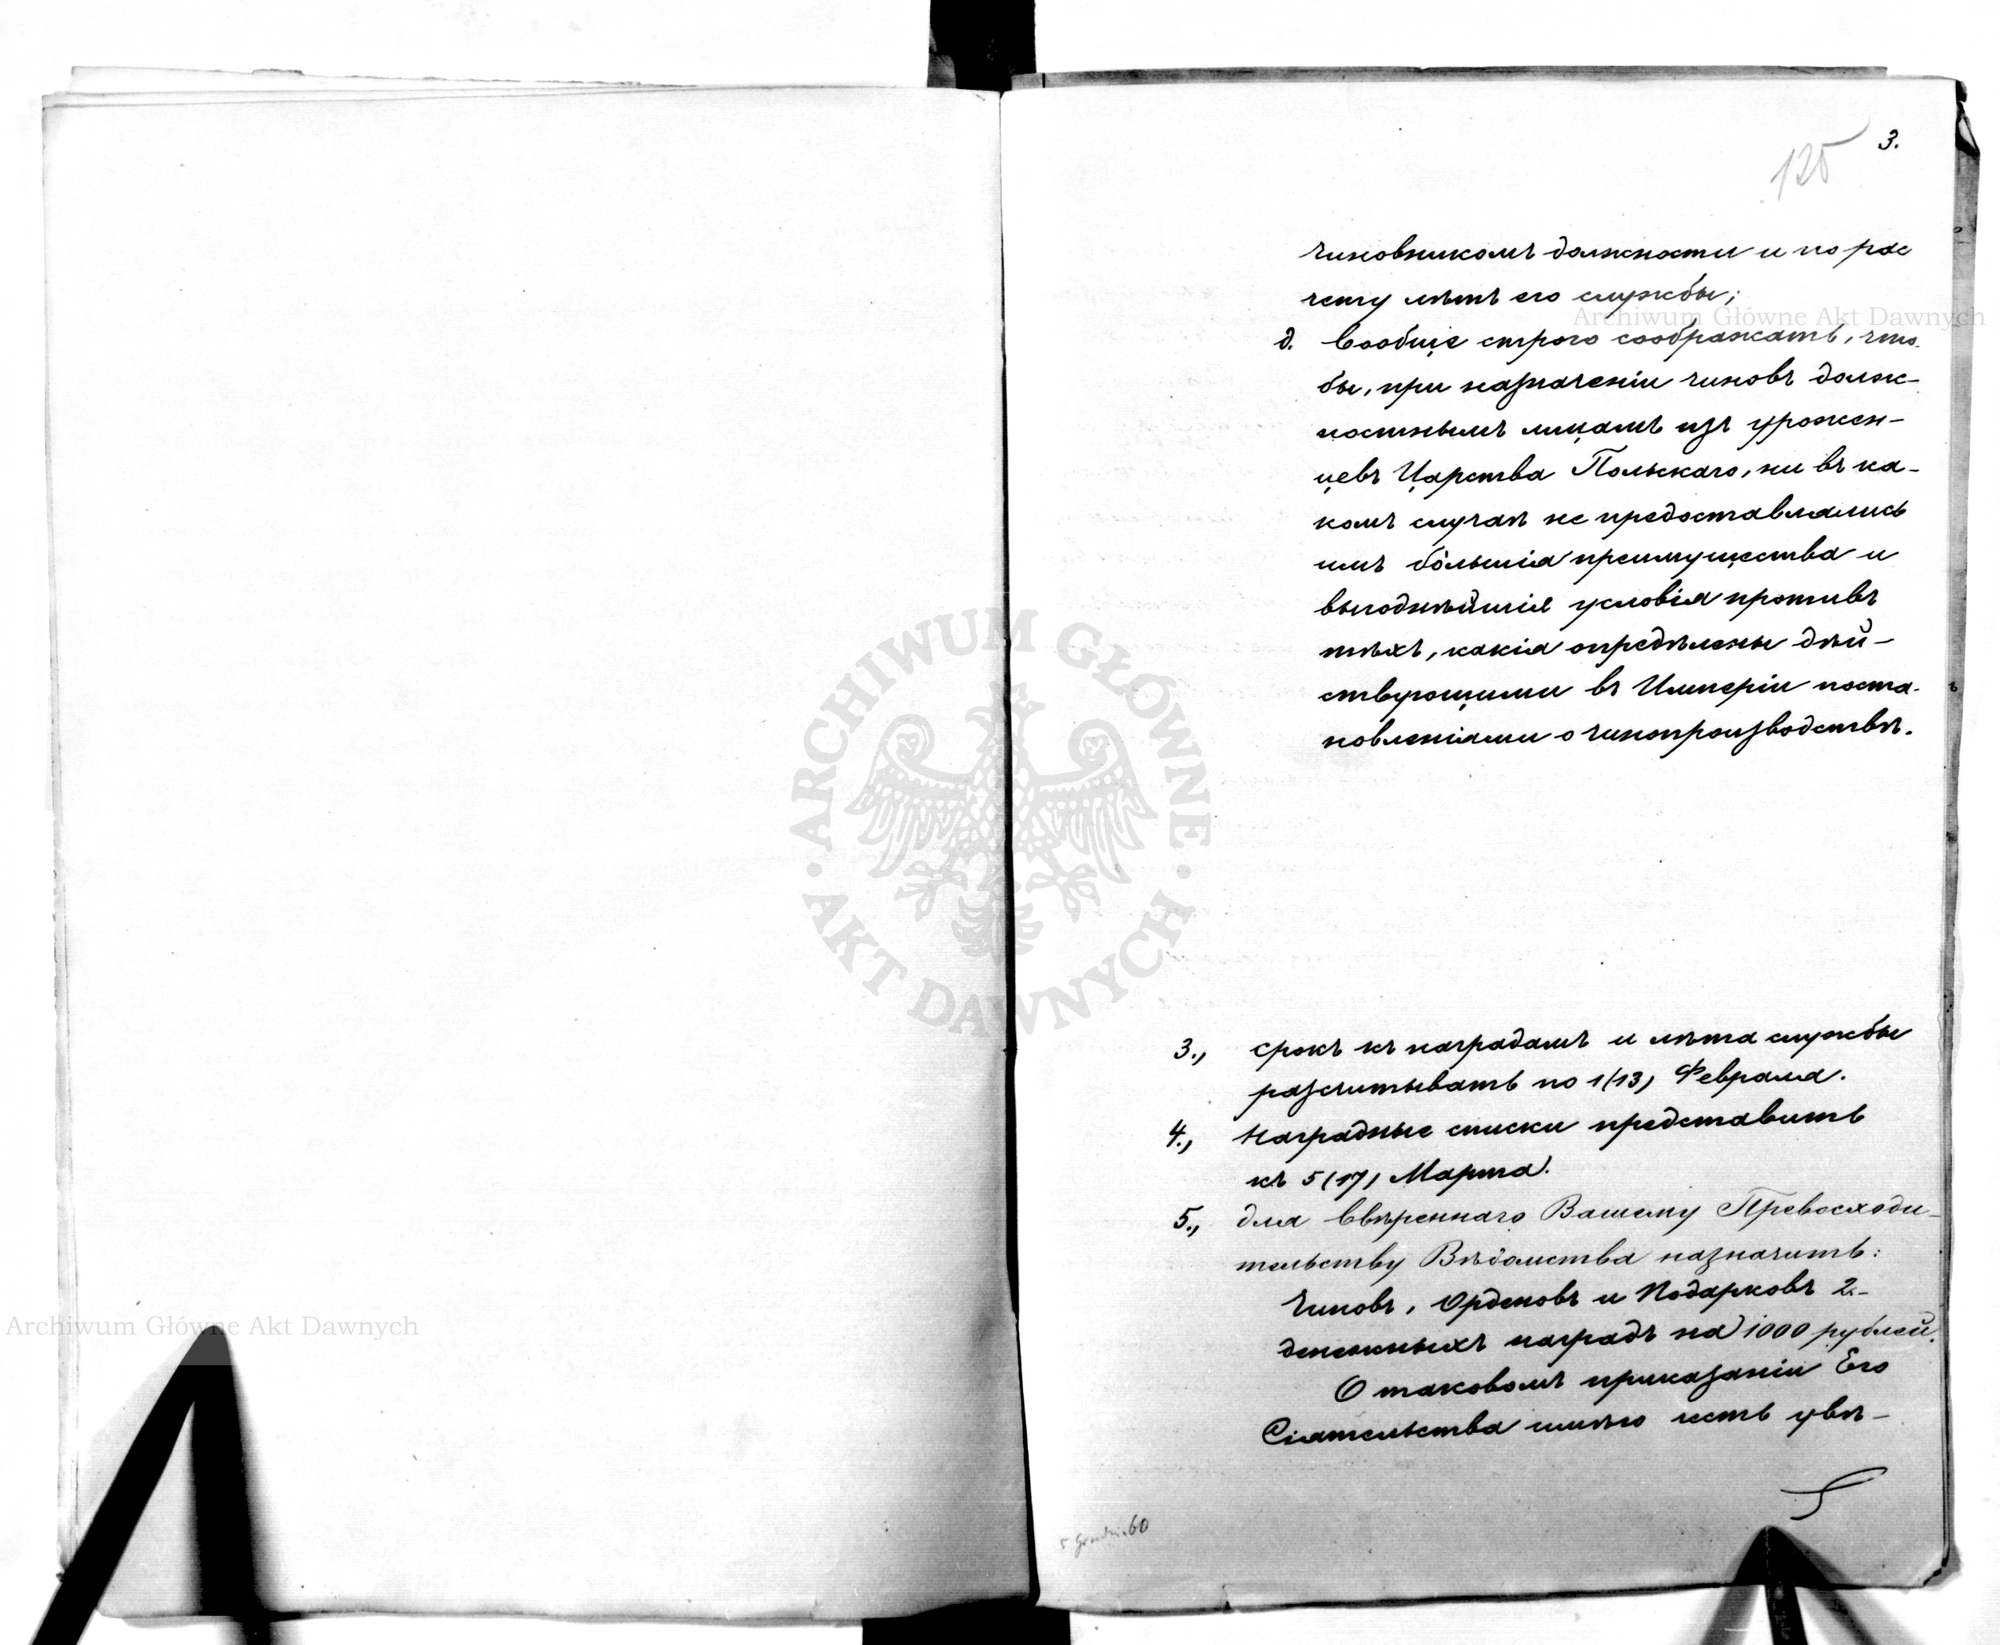 3.
125
чиновникомъ должности и по рас
чету лѣтъ его службы;
д. Вообще строго соображать, что-
бы, при назначеніи чиновъ долж-
ностнымъ лицамъ изъ урожен-
цевъ Царства Польскаго, ни въ ка-
комъ случаѣ не предоставлялись
имъ бóльшія преимущества и
выгоднѣйшія условія противъ
тѣхъ, какія опредѣлены дѣй-
ствующими въ Имперіи поста-
новленіями о чинопроизводствѣ.
3., срокъ къ наградамъ и лѣта службы
разсчитывать по 1(13) Февраля.
4., Наградные списки представить
къ 5(17) Марта.
5., для ввѣреннаго Вашему Превосходи-
тельству Вѣдомства назначить:
Чиновъ, Орденовъ и Подарковъ 2.-
денежныхъ наградъ на 1000 рублей.
О таковомъ приказаніи Его
Сіятельства имѣю честь увѣ-
5 Grudn. 60
Archiwum Główne Akt Dawnych
Archiwum Główne Akt Dawnych
ARCHIWUM GŁÓWNE · AKT DAWNYCH ·